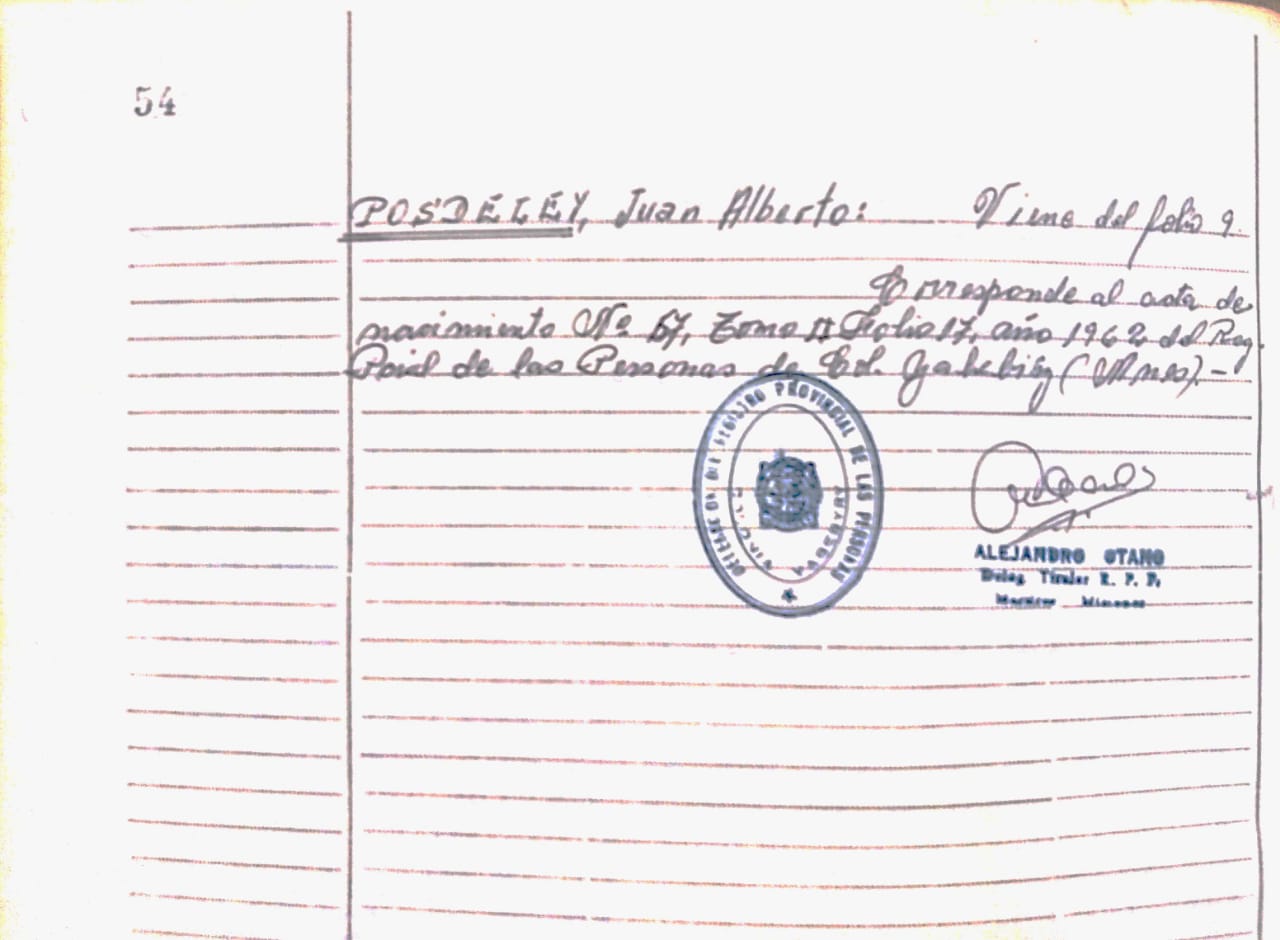 54
POSDELEY, Juan Alberto: Viene del folio 9.
Corresponde al acta de
nacimiento Nº 57, Tomo II Folio 17, año 1962 del Reg.
Pcial de las Personas de Col. Yabebiry (Mnes).-
DELEGACION DEL REGISTRO PROVINCIAL DE LAS PERSONAS
ALEJANDRO OTANO
Deleg. Titular R. P. P.
Misiones